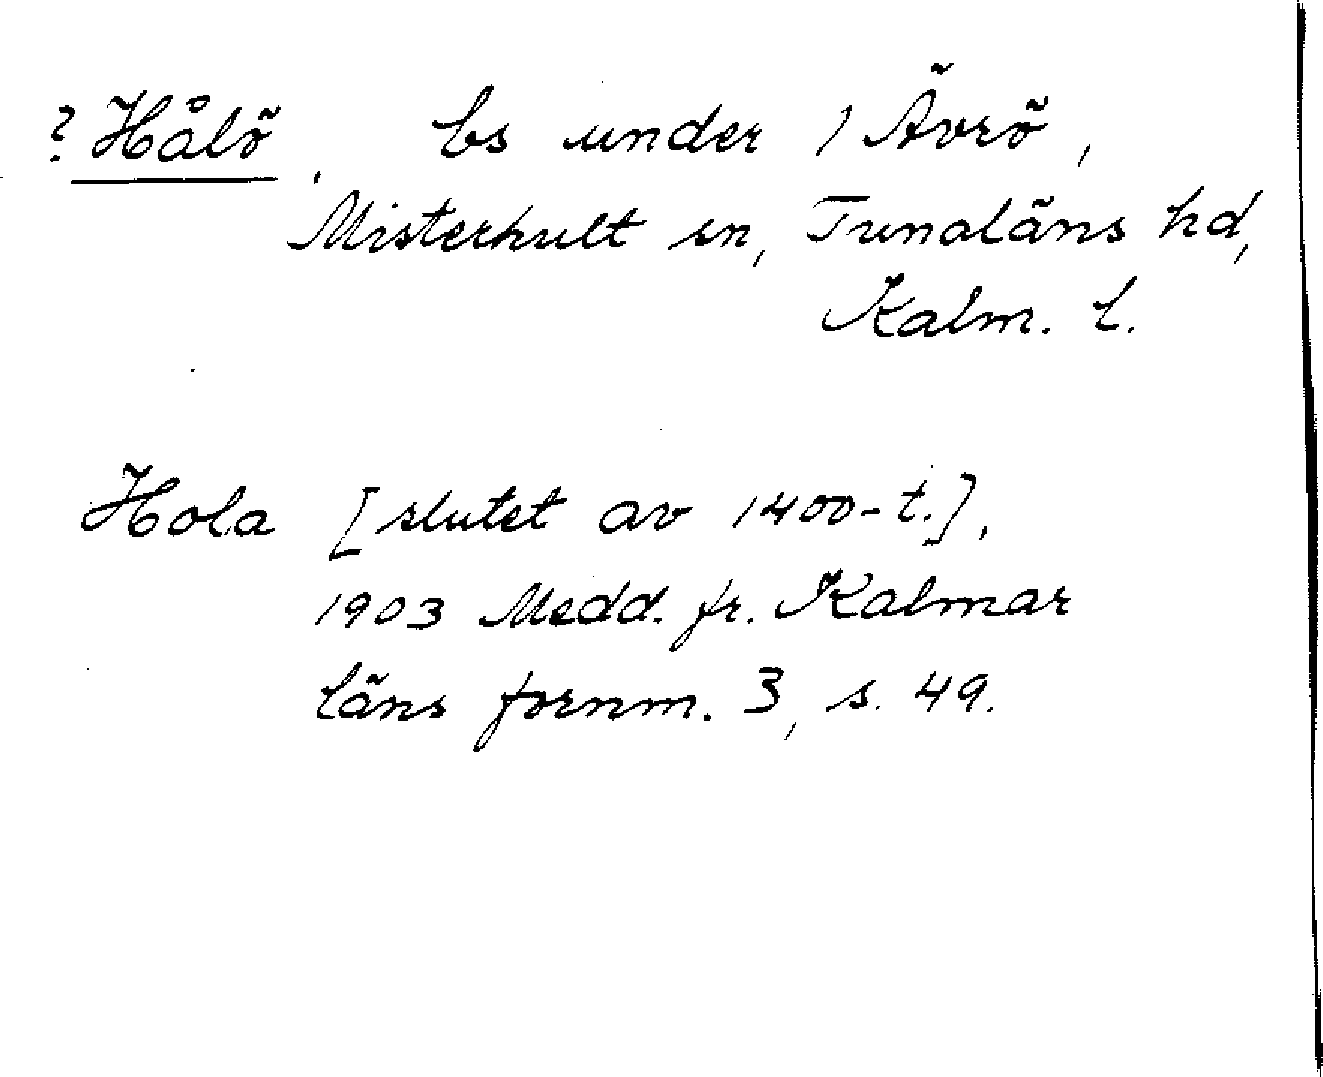 ? Hålö, ls under 1 Ävrö,
Misterhult sn, Tunaläns hd,
Kalm. l.
Hola [slutet av 1400-t.],
1903 Medd. fr. Kalmar
läns fornm. 3, s. 49.